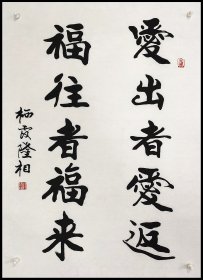 愛出者愛返
福往者福来
栖霞隆相